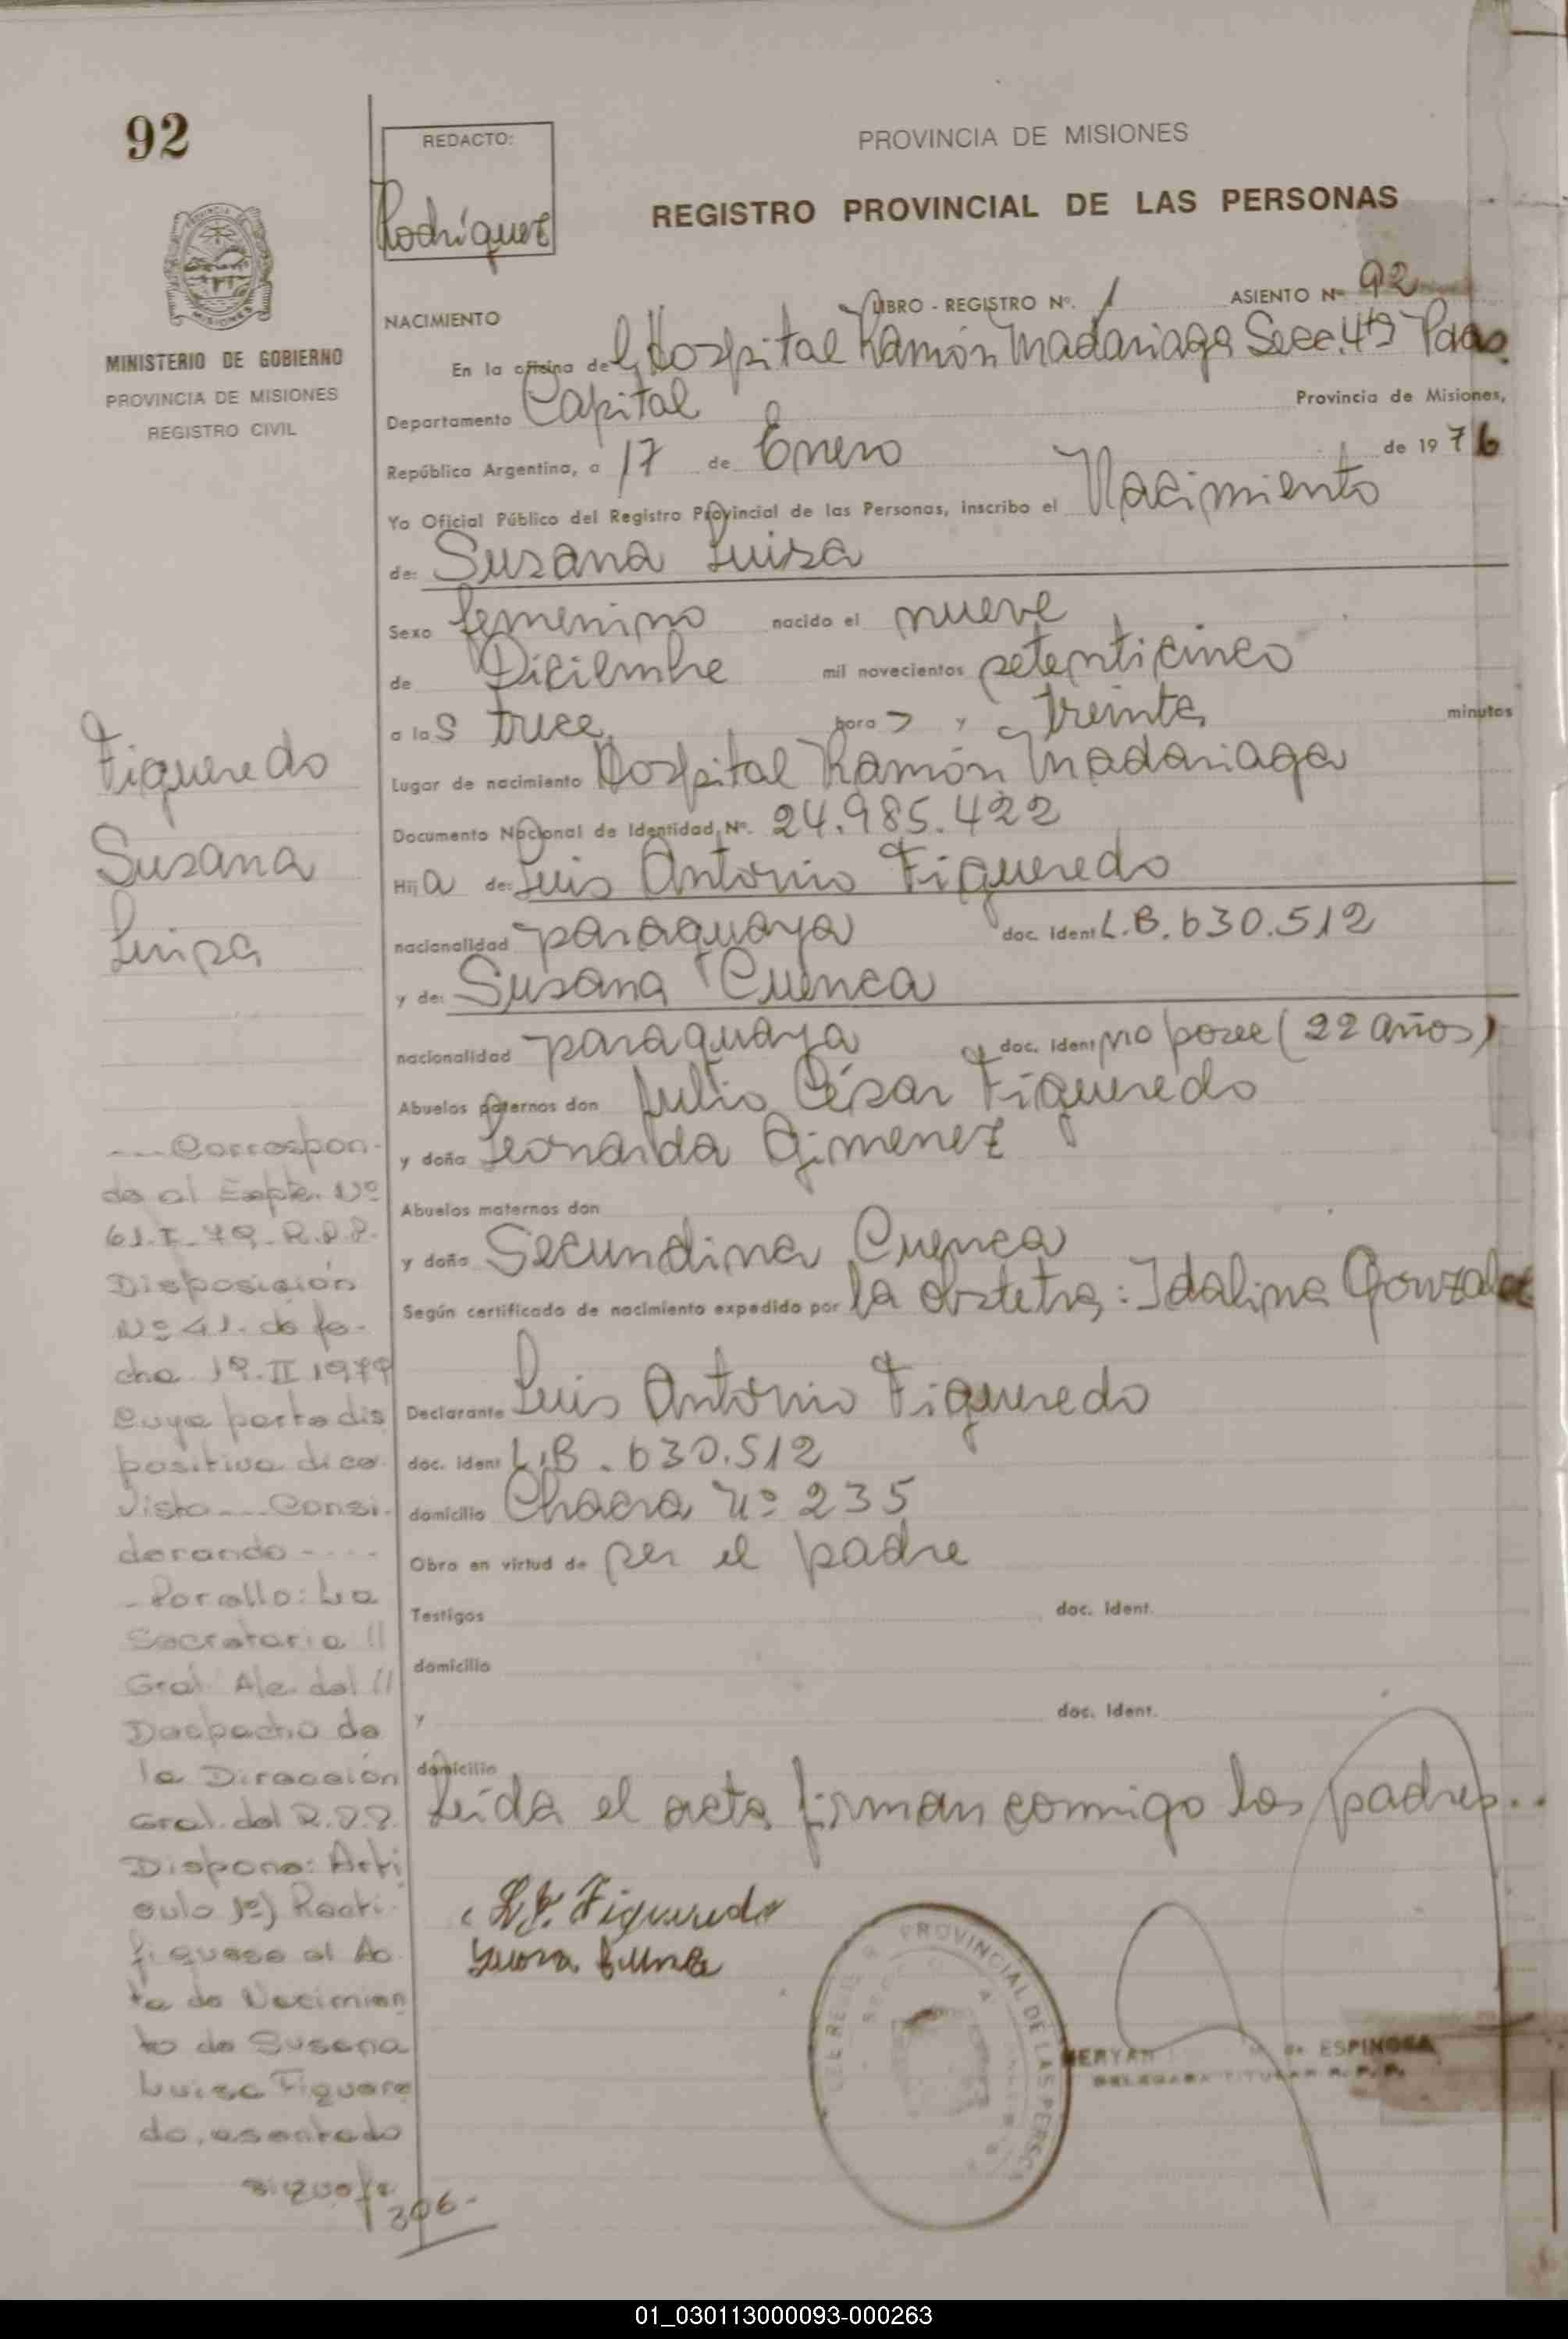 92
REDACTO:
Rodríguez
PROVINCIA DE MISIONES
REGISTRO PROVINCIAL DE LAS PERSONAS
MINISTERIO DE GOBIERNO
PROVINCIA DE MISIONES
REGISTRO CIVIL
NACIMIENTO LIBRO - REGISTRO Nº. 1 ASIENTO Nº 92
En la oficina del Hospital Ramón Madariaga Secc. 4ta Pdas.
Departamento Capital Provincia de Misiones,
República Argentina, a 17 de Enero de 1976
Yo Oficial Público del Registro Provincial de las Personas, inscribo el Nacimiento
de: Susana Luisa
Sexo femenino nacido el nueve
de Diciembre mil novecientos setenticinco
a las trece horas y treinta minutos
Lugar de nacimiento Hospital Ramón Madariaga
Documento Nacional de Identidad Nº. 24.985.422
Hija de: Luis Antonio Figueredo
nacionalidad paraguaya doc. ident L.B. 630.512
y de: Susana Cuenca
nacionalidad paraguaya doc. ident no posee (22 años)
Abuelos paternos don Julio César Figueredo
y doña Leonarda Gimenez
Abuelos maternos don
y doña Secundina Cuenca
Según certificado de nacimiento expedido por la obstetra: Idalina Gonzalez
Declarante Luis Antonio Figueredo
doc. ident L.B. 630.512
domicilio Chacra nº 235
Obra en virtud de ser el padre
Testigos doc. ident.
domicilio
y doc. ident.
domicilio
Leída el acta firman conmigo los padres..
L.A. Figueredo
PROVINCIAL DE LAS PERSO
de ESPINOSA
DELEGADA TITULAR R. P. P.
Figueredo
Susana
Luisa
---Correspon-
de al Expte. Nº
61-F-79-R.P.P.
Disposición
Nº 41- de fe-
cha 19-II 1979
Cuya parte dis
positiva dice
Visto---Consi-
derando----
-Por ello: La
Secretaria //
Gral. A/c. del //
Despacho de
la Dirección
Gral. del R.P.P.
Dispone: Artí
culo 1º) Recti-
fíquese el Ac
ta de Nacimien
to de Susana
Luisa Figuere
do, asentado
sigue fs
306-
01_030113000093-000263